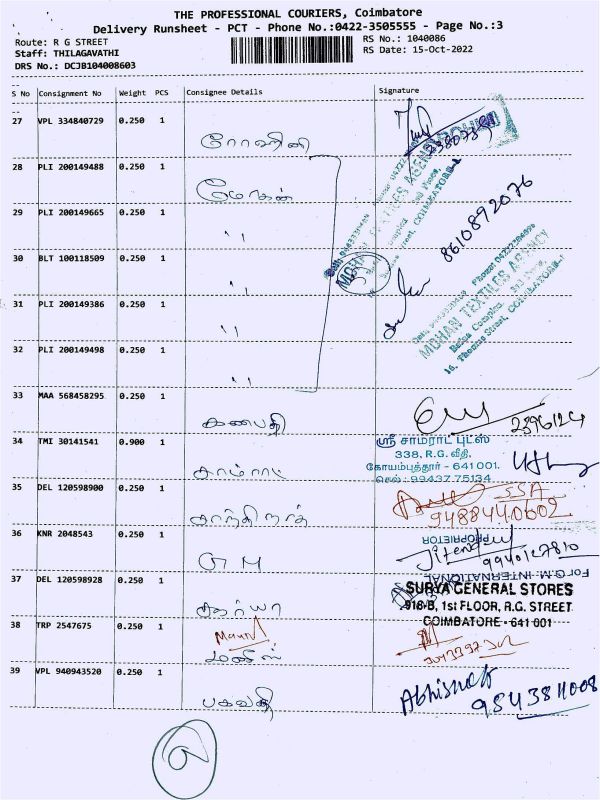 THE PROFESSIONAL COURIERS, Coimbatore
Delivery Runsheet - PCT - Phone No.:0422-3505555 - Page No.:3
Route: R G STREET
Staff: THILAGAVATHI
DRS No.: DCJB104008603
RS No.: 1040086
RS Date: 15-Oct-2022
S No Consignment No Weight PCS Consignee Details Signature
27 VPL 334840729 0.250 1
ரோஹினி
28 PLI 200149488 0.250 1
மோகன்
29 PLI 200149665 0.250 1
"
30 BLT 100118509 0.250 1
"
8610892076
31 PLI 200149386 0.250 1
"
MOHAN TEXTILES AGENCY
Balaa Complex, 3rd Floor,
16, Thomas Street, COIMBATORE-1
32 PLI 200149498 0.250 1
"
33 MAA 568458295 0.250 1
கணபதி
34 TMI 30141541 0.900 1
ஸ்ரீ சாம்ராட் புட்ஸ்
338, R.G. வீதி,
கோயம்புத்தூர் - 641 001.
செல் : 99437 75134
சாம்ராட்
35 DEL 120598900 0.250 1
SSA
9488440602
சாந்திநாத்
36 KNR 2048543 0.250 1
PROPRIETOR
9940127810
G M
For G.M. INTERNATIONAL
37 DEL 120598928 0.250 1
SURYA GENERAL STORES
918-B, 1st FLOOR, R.G. STREET
COIMBATORE - 641 001
சூர்யா
38 TRP 2547675 0.250 1
மனிஷ்
39 VPL 940943520 0.250 1
Abhishek
9843811008
பகவதி